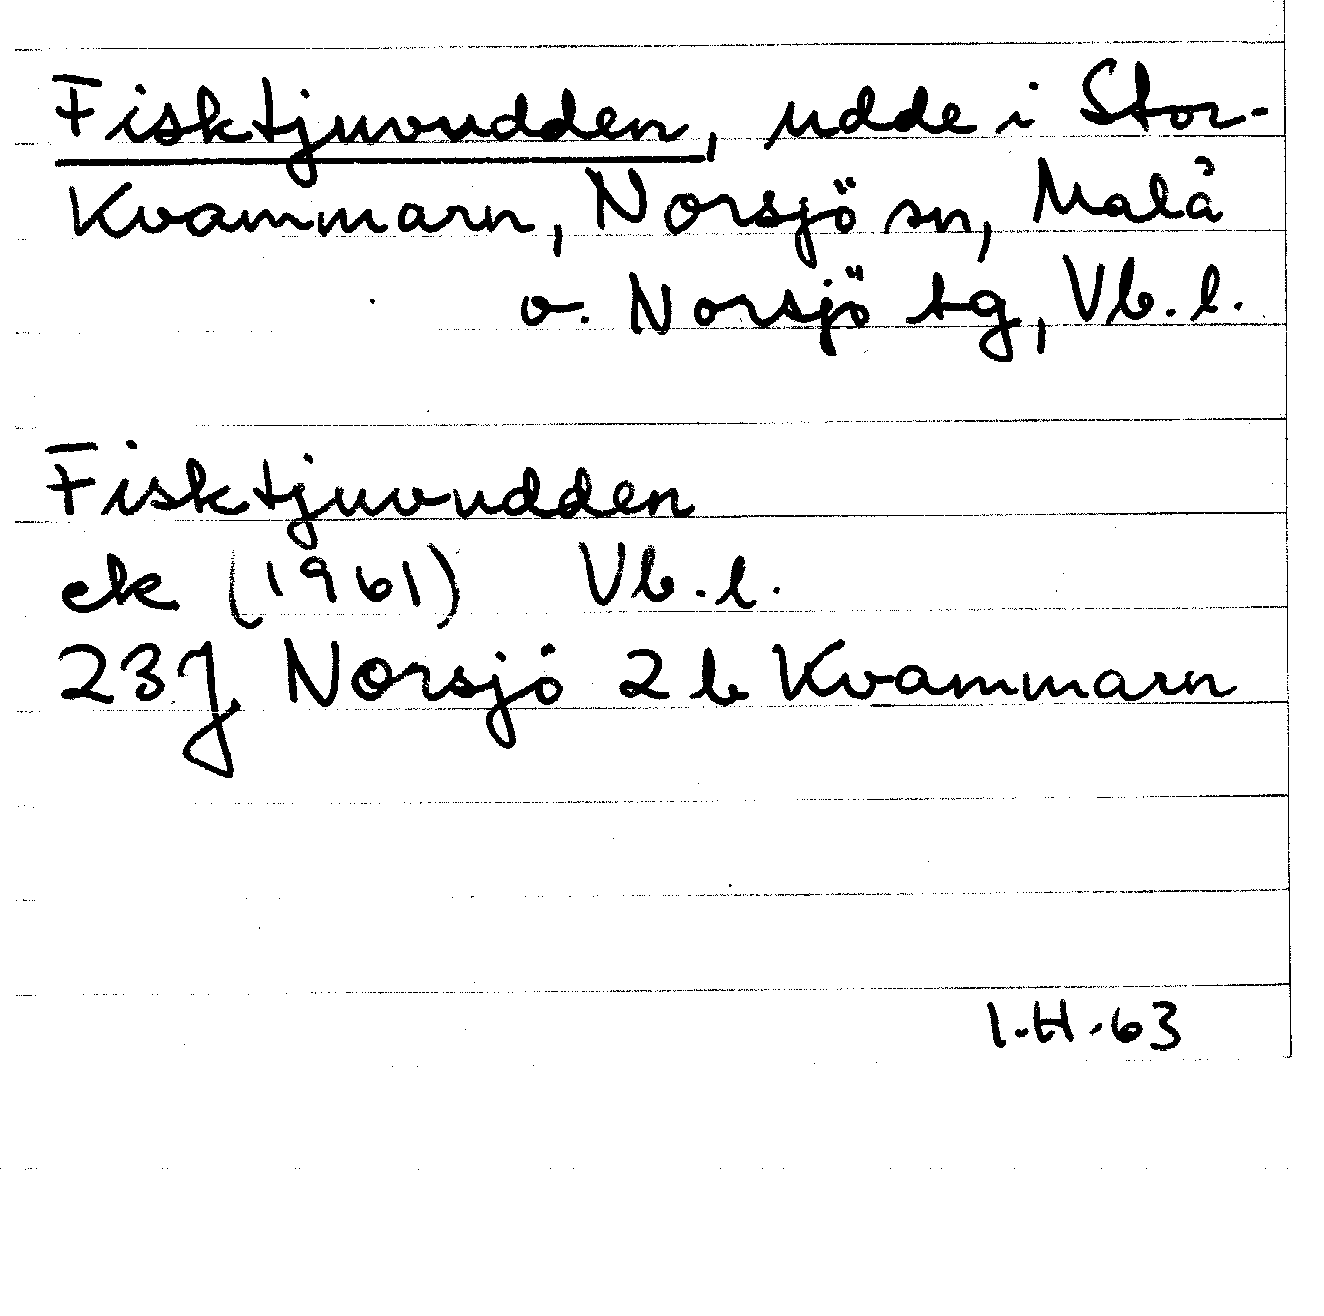 Fisktjuvudden, udde i Stor-
Kvammarn, Norsjö sn, Malå
o. Norsjö tg, Vb. l.
Fisktjuvudden
ek (1961) Vb. l.
23J Norsjö 2 b Kvammarn
I.H.63